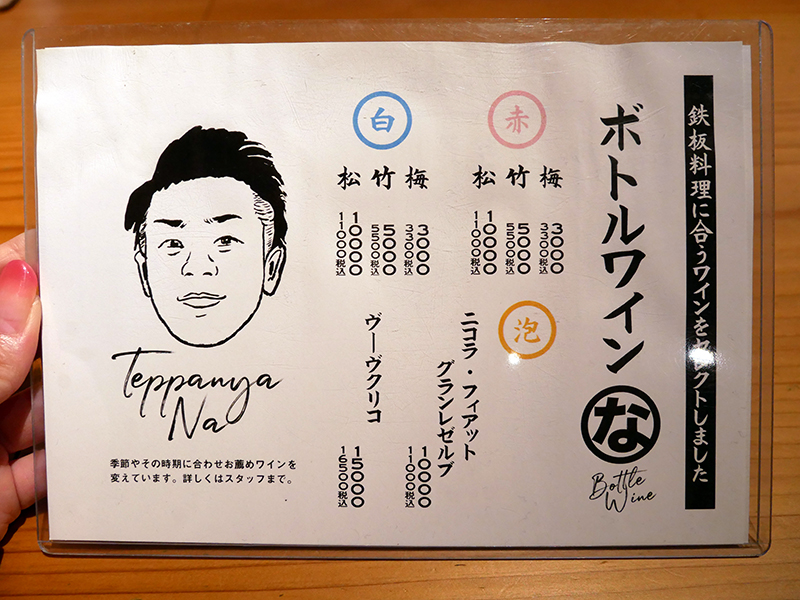 鉄板料理に合うワインをセレクトしました
ボトルワイン
な
Bottle Wine
赤
梅
3000
3300税込
竹
5000
5500税込
松
10000
11000税込
白
梅
3000
3300税込
竹
5000
5500税込
松
10000
11000税込
泡
ニコラ・フィアット
グランレゼルブ
10000
11000税込
ヴーヴクリコ
15000
16500税込
Teppanya
Na
季節やその時期に合わせお薦めワインを
変えています。詳しくはスタッフまで。